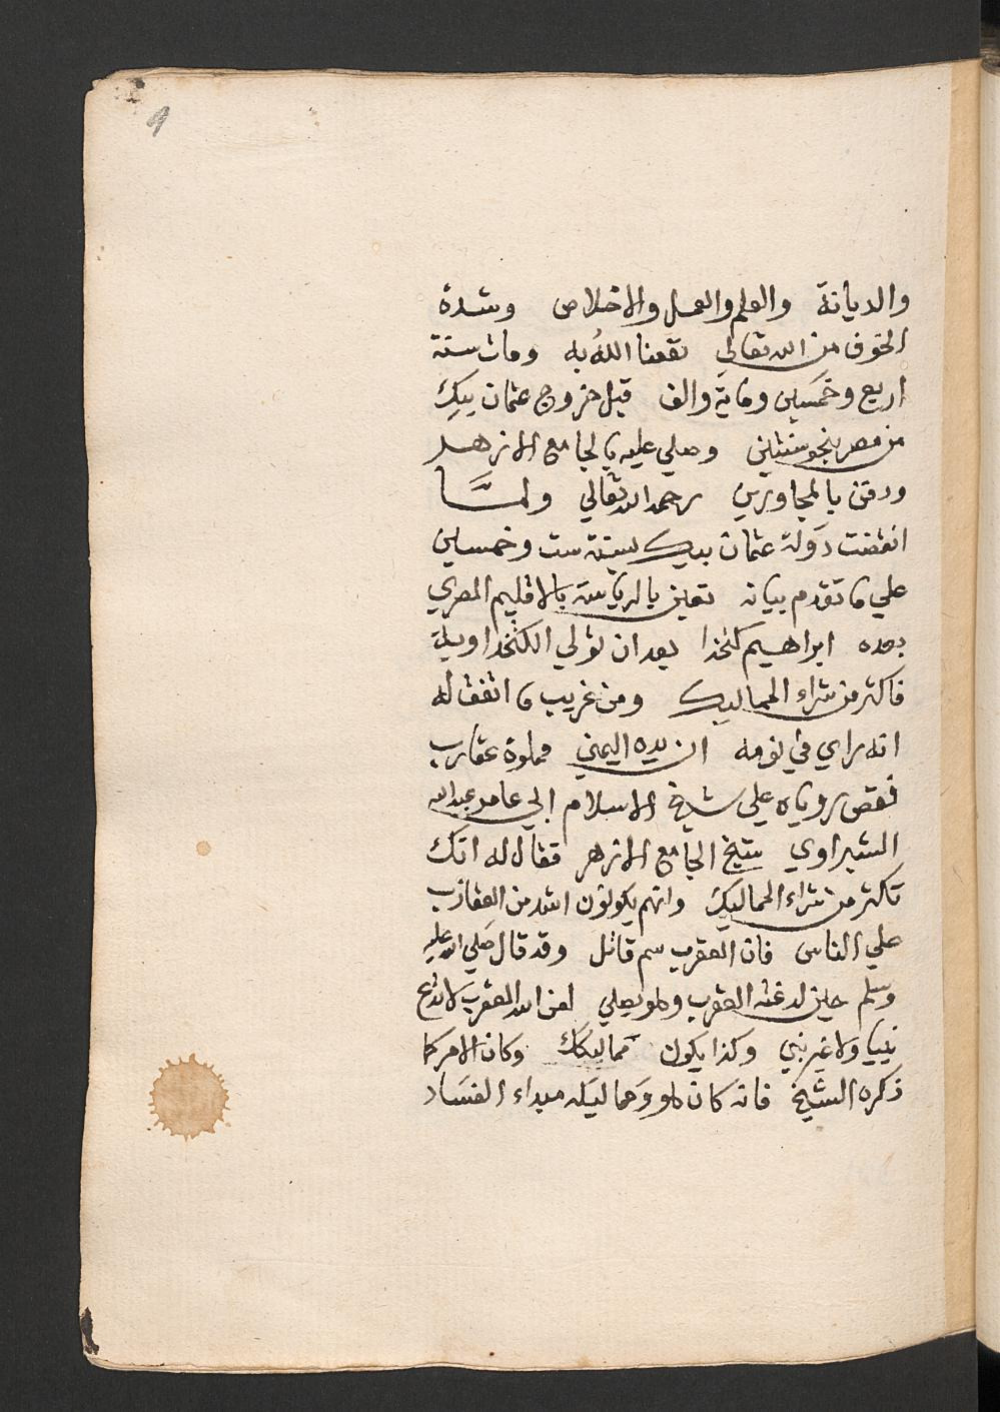 9
والديانة والعلم والعمل والاخلاص وشدة
الخوف من الله تعالي نفعنا اللهُ به ومات سنة
اربع وخمسين وماية والف قبل خروج عثمان بيك
من مصر بنحو سنتين وصلي عليه بالجامع الازهر
ودفن بالمجاورين رحمه الله تعالي ولمَّا
انقضت دَولة عثمان بيك سنة ست وخمسين
علي ما تقدم بيانه تعين بالرياسة بالاقليم المصري
بعده ابراهيم كتخدا بعد ان تولي الكتخداوية
فاكثر من شراء المماليك ومن غريب ما اتفق له
انه راي في نومه ان يده اليمني مملوة عقارب
فقص روياه علي شيخ الاسلام ابي عامر عبد الله
الشبراوي شيخ الجامع الازهر فقال له انك
تكثر من شراء المماليك وانهم يكونون اشد من العقارب
علي الناس فان العقرب سم قاتل وقد قال صَلي الله عليه
وسلم حين لدغته العقرب وهو يصلي لعن الله العقرب لا تدع
نبيا ولا غير نبي وكذا يكون مماليكك وكان الامر كما
ذكره الشيخ فانه كان هو وَمماليكه مبداء الفسَاد